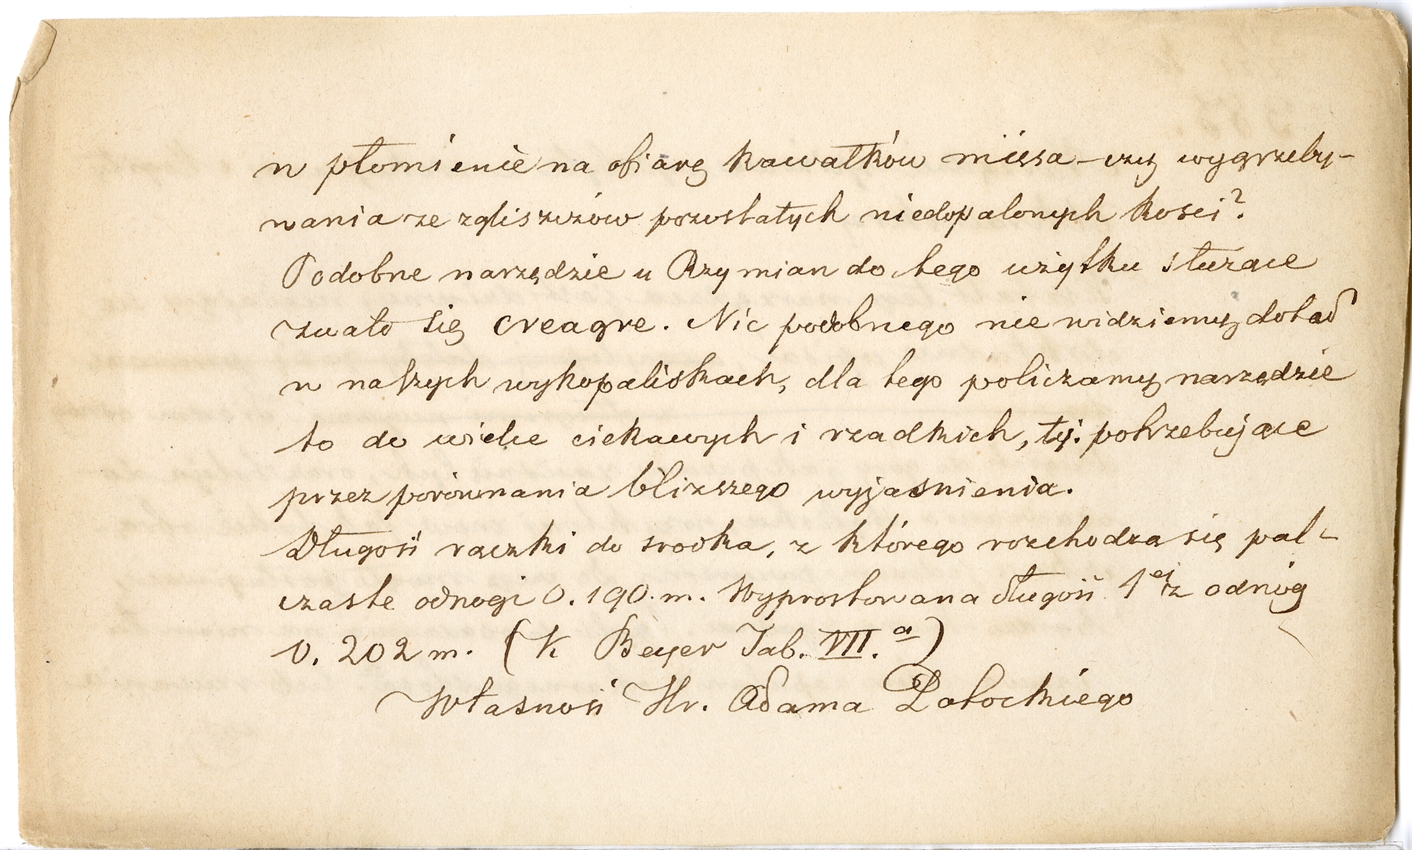 w płomienie na ofiarę kawałków mięsa – czy wygrzeby-
wania ze zgliszczów pozostałych niedopalonych kości?
Podobne narzędzie u Rzymian do tego użytku służące
zwało się creagre. Nic podobnego nie widziemy dotąd
w naszych wykopaliskach, dla tego policzamy narzędzie
to do wielce ciekawych i rzadkich, tj: potrzebujące
przez porównania bliższego wyjaśnienia.
Długość rączki do srodka, z którego rozchodzą się pal-
czaste odnogi 0. 190. m. Wyprostowana długość 1ej z odnóg
0. 202 m. (K Beyer Tab. VII.a)
Własność Hr. Adama Potockiego